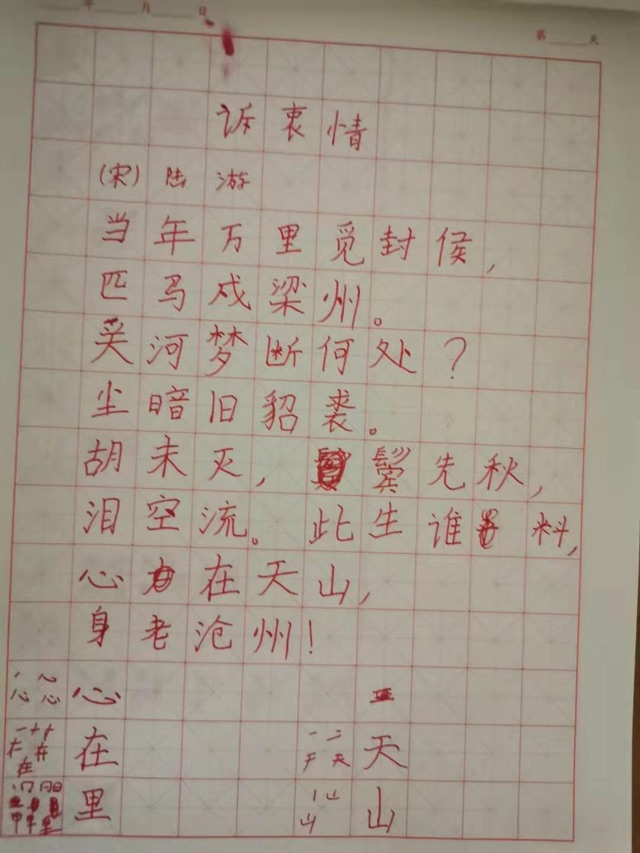 年 月 日 第 天
诉衷情
(宋)陆游
当年万里觅封侯,
匹马戍梁州。
关河梦断何处?
尘暗旧貂裘。
胡未灭,鬓先秋,
泪空流。此生谁料,
心在天山,
身老沧州!
心
在 天
里 山